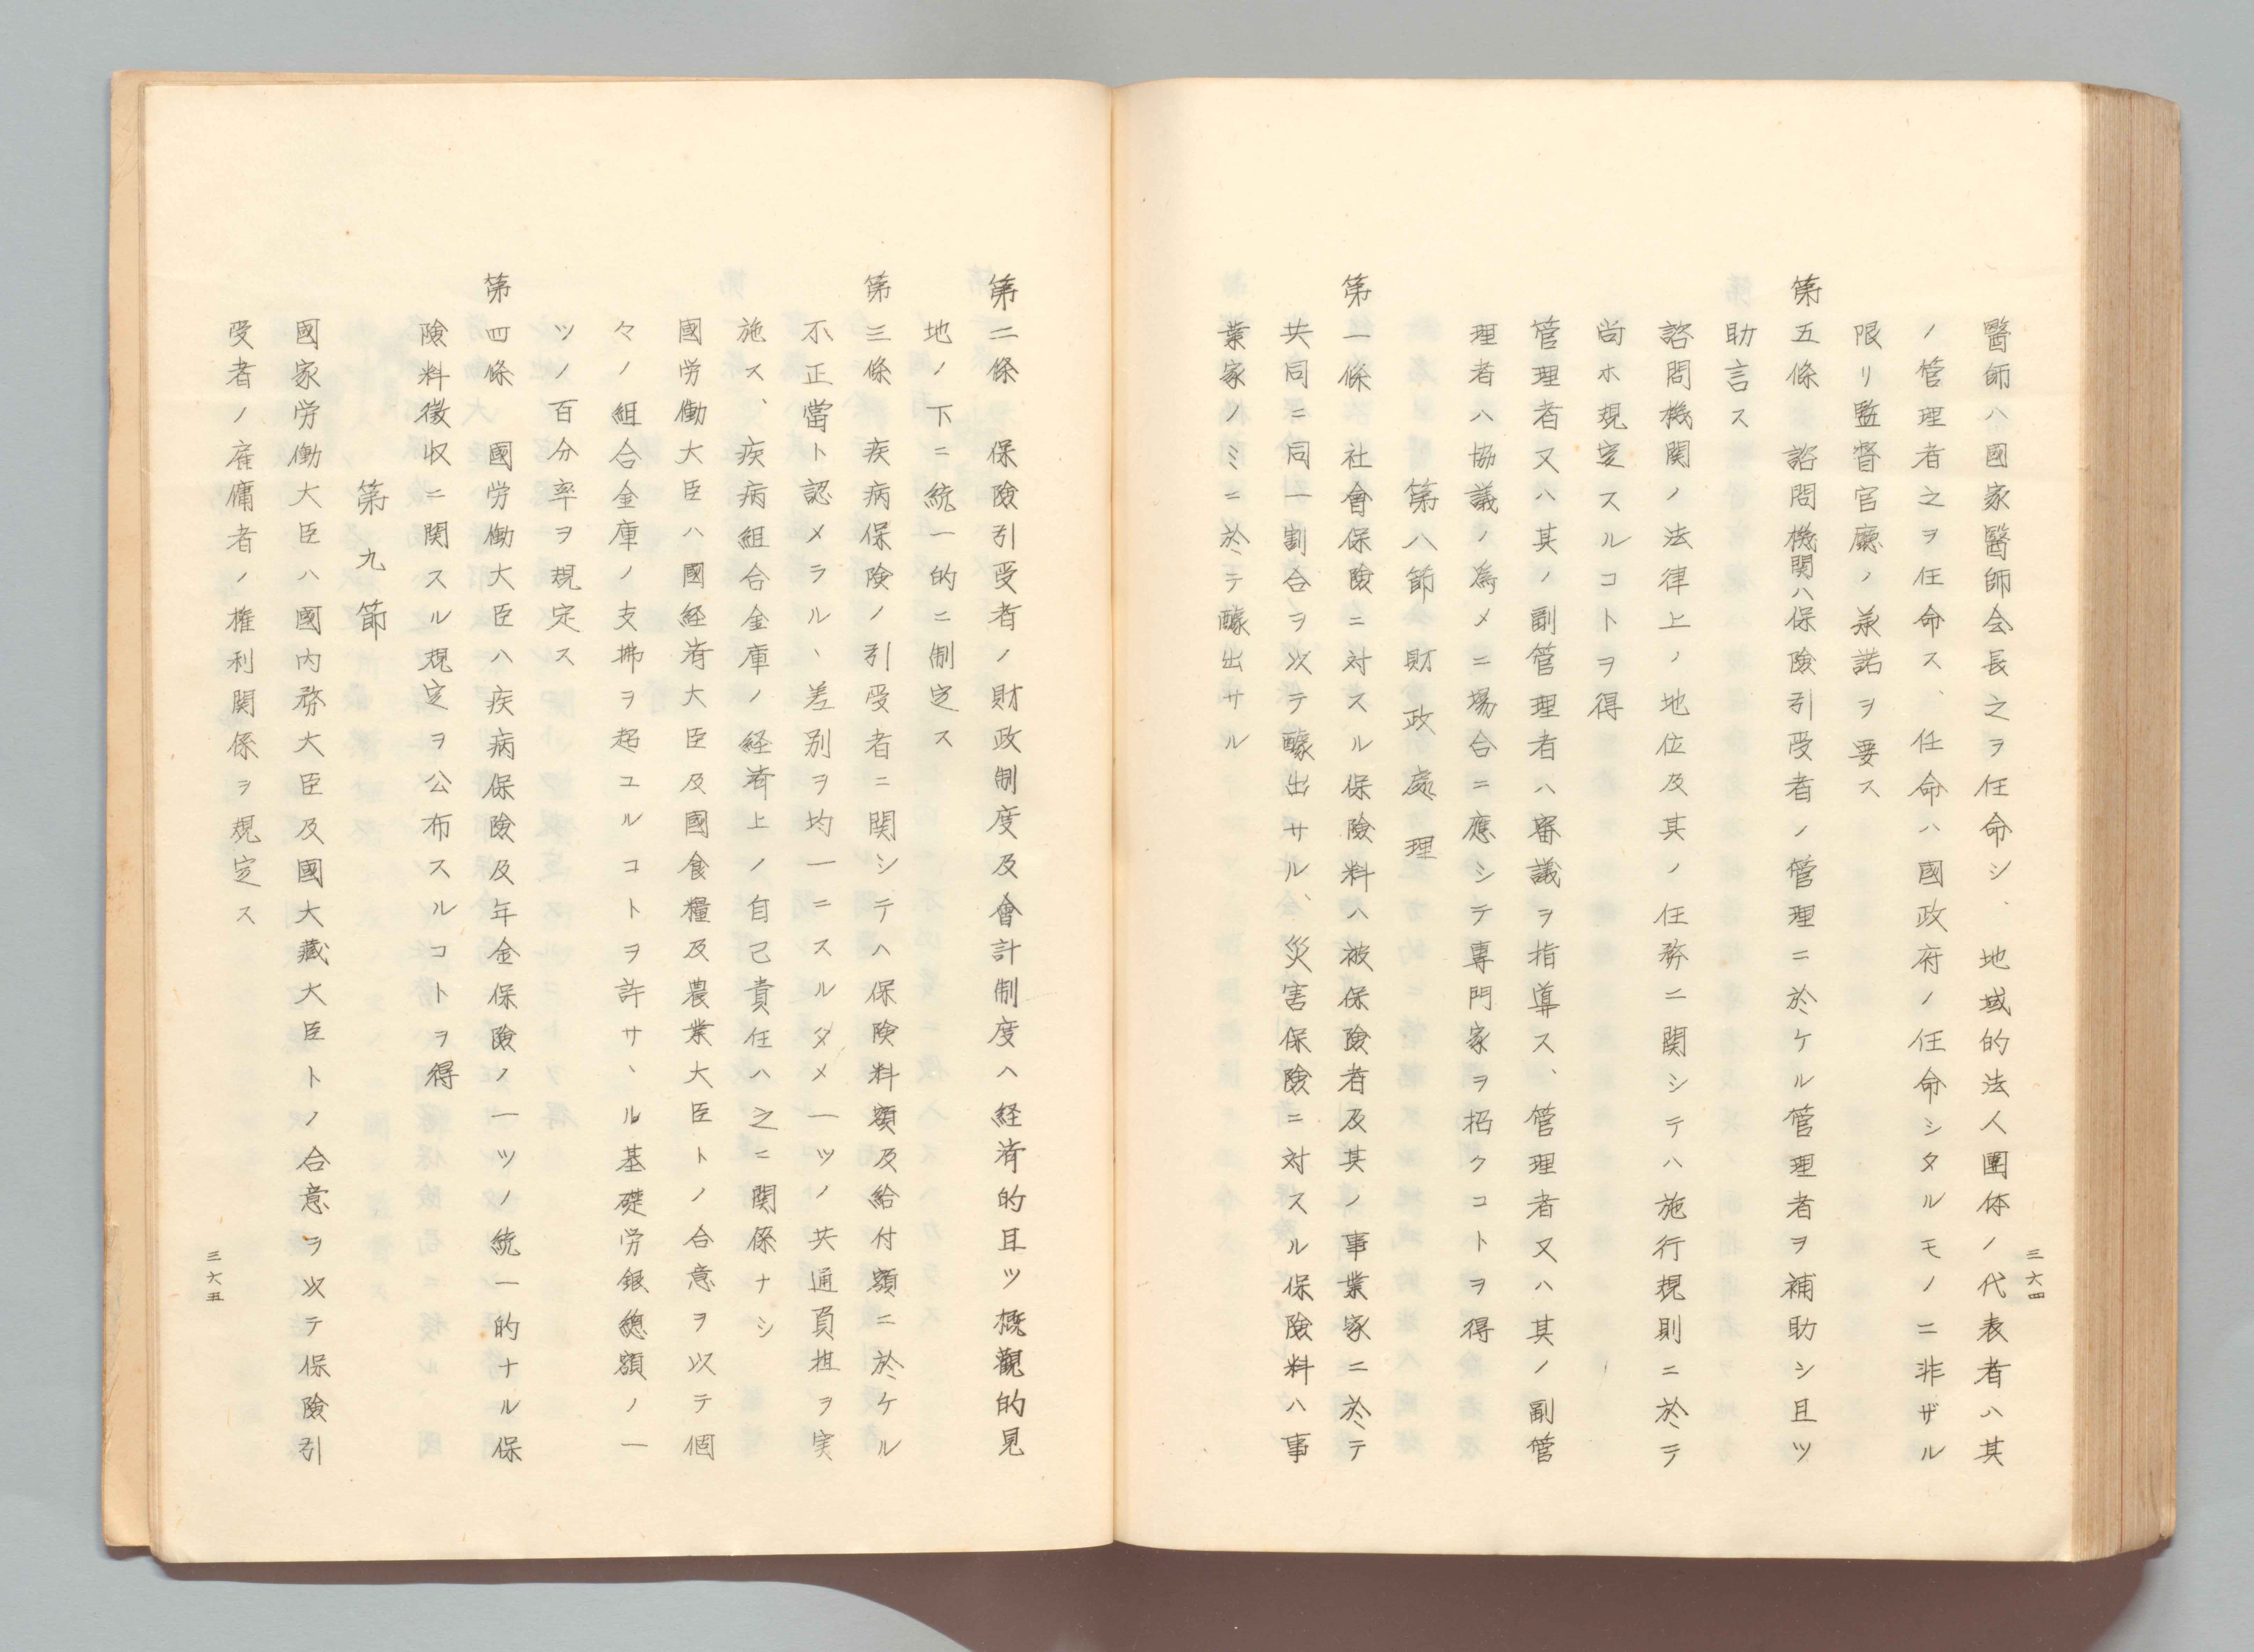 醫師ハ國家醫師会長之ヲ任命シ、地域的法人團体ノ代表者ハ其
ノ管理者之ヲ任命ス、任命ハ國政府ノ任命シタルモノニ非ザル
限リ監督官廳ノ承諾ヲ要ス
第五條 諮問機関ハ保險引受者ノ管理ニ於ケル管理者ヲ補助シ且ツ
助言ス
諮問機関ノ法律上ノ地位及其ノ任務ニ関シテハ施行規則ニ於テ
尚ホ規定スルコトヲ得
管理者又ハ其ノ副管理者ハ審議ヲ指導ス、管理者又ハ其ノ副管
理者ハ協議ノ為メニ場合ニ應シテ專門家ヲ招クコトヲ得
第八節 財政處理
第一條 社會保險ニ対スル保險料ハ被保險者及其ノ事業家ニ於テ
共同ニ同一割合ヲ以テ醵出サル、災害保險ニ対スル保險料ハ事
業家ノミニ於テ醵出サル
三六四
第二條 保險引受者ノ財政制度及會計制度ハ経済的且ツ概觀的見
地ノ下ニ統一的ニ制定ス
第三條 疾病保険ノ引受者ニ関シテハ保険料額及給付額ニ於ケル
不正當ト認メラルヽ差別ヲ均一ニスルタメ一ツノ共通負担ヲ実
施ス、疾病組合金庫ノ経済上ノ自己責任ハ之ニ関係ナシ
國労働大臣ハ國経済大臣及國食糧及農業大臣トノ合意ヲ以テ個
々ノ組合金庫ノ支拂ヲ超ユルコトヲ許サヽル基礎労銀總額ノ一
ツノ百分率ヲ規定ス
第四條 國労働大臣ハ疾病保險及年金保險ノ一ツノ統一的ナル保
險料徴収ニ関スル規定ヲ公布スルコトヲ得
第九節
國家労働大臣ハ國內務大臣及國大藏大臣トノ合意ヲ以テ保險引
受者ノ雇傭者ノ権利関係ヲ規定ス
三六五